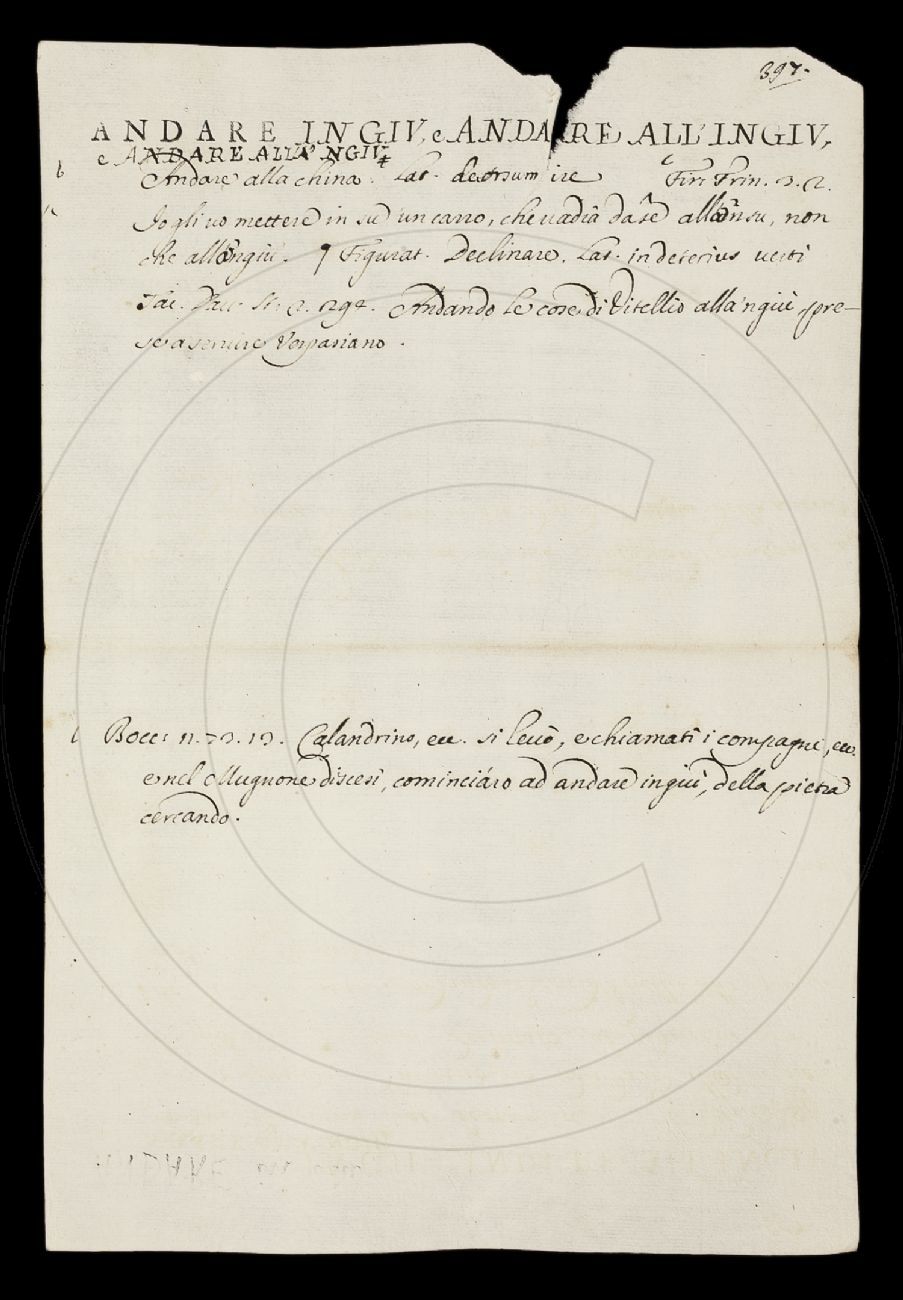 397.
ANDARE INGIV, e ANDARE ALL'INGIV,
e ANDARE ALLA'NGIV
b Andare alla china. Lat. deorsum ire Fir. Trin. 3. 2.
Io gli vo mettere in su un carro, che vadia da se all'insu, non
che all'ingiù. ¶ Figurat. Declinare. Lat. in deterius verti
Tac. Dav. St. 2. 294. Andando le cose di Vitellio alla'ngiù, pre-
se a servire Vespasiano.
Bocc. n. 73. 13. Calandrino, ec. si levò, e chiamati i compagni, ec.
e nel Mugnone discesi, cominciáro ad andare ingiù, della pietra
cercando.